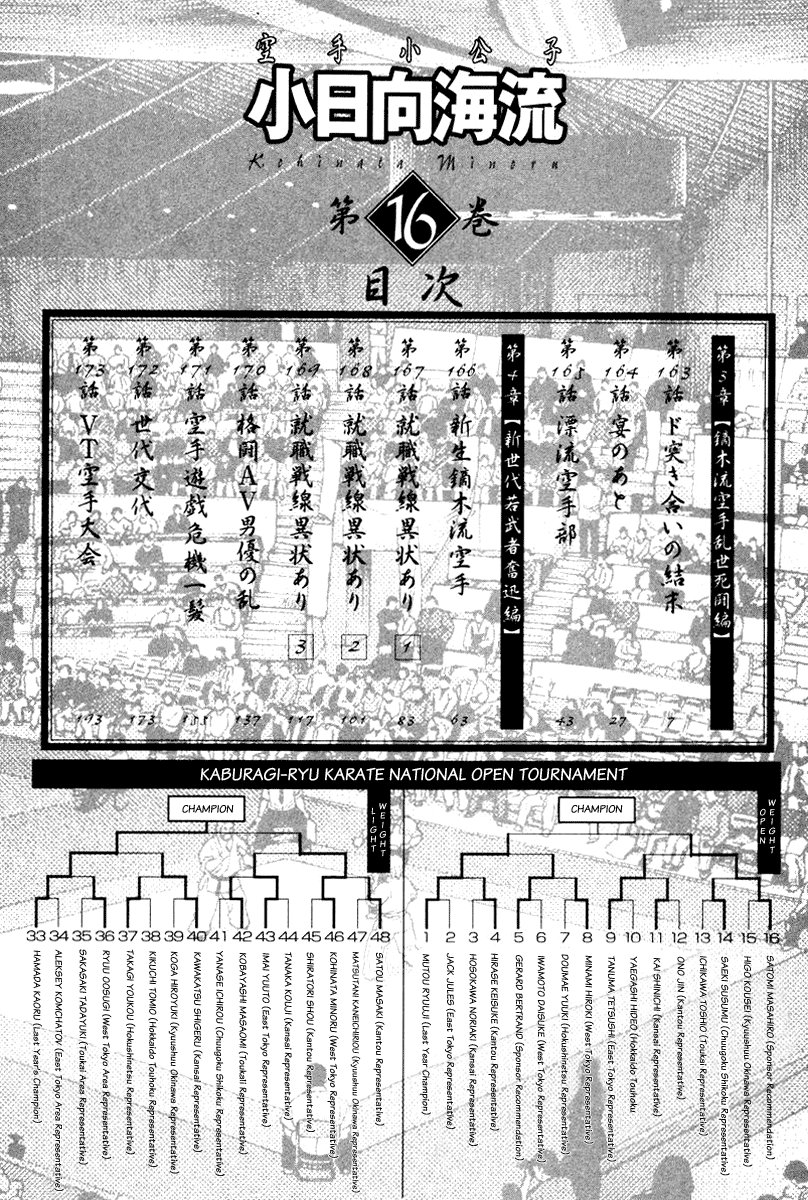 空手小公子
小日向海流
Kohinata Minoru
第16巻
目次
第3章【鏑木流空手乱世死闘編】
第163話 ド突き合いの結末 7
第164話 宴のあと 27
第165話 漂流空手部 43
第4章【新世代若武者奮迅編】
第166話 新生鏑木流空手 63
第167話 就職戦線異状あり 1 83
第168話 就職戦線異状あり 2 101
第169話 就職戦線異状あり 3 117
第170話 格闘AV男優の乱 137
第171話 空手遊戯危機一髪 155
第172話 世代交代 173
第173話 VT空手大会 193
KABURAGI-RYU KARATE NATIONAL OPEN TOURNAMENT
LIGHT WEIGHT
CHAMPION
33 HAMADA KAORU (Last Year's Champion)
34 ALEKSEY KOMCHATOV (East Tokyo Area Representative)
35 SAKASAKI TADAYUKI (Toukai Area Representative)
36 RYUU OOSUGI (West Tokyo Area Representative)
37 TAKAGI YOUKOU (Hokushinetsu Representative)
38 KIKUCHI TOMIO (Hokkaido Touhoku Representative)
39 KOGA HIROYUKI (Kyuushuu Okinawa Representative)
40 KAWAKATSU SHIGERU (Kansai Representative)
41 YANASE ICHIROU (Chuugoku Shikoku Representative)
42 KOBAYASHI MASAOMI (Toukai Representative)
43 IMAI YUUTO (East Tokyo Representative)
44 TANAKA KOUJI (Kansai Representative)
45 SHIRATORI SHOU (Kantou Representative)
46 KOHINATA MINORU (West Tokyo Representative)
47 MATSUTANI KANEICHIROU (Kyuushuu Okinawa Representative)
48 SATOU MASAKI (Kantou Representative)
OPEN WEIGHT
CHAMPION
1 MUTOU RYUUJI (Last Year Champion)
2 JACK JULES (East Tokyo Representative)
3 HOSOKAWA NORIAKI (Kansai Representative)
4 HIRASE KEISUKE (Kantou Representative)
5 GERARD BERTRAND (Sponsor Recommendation)
6 IWAMOTO DAISUKE (West Tokyo Representative)
7 DOUMAE YUUKI (Hokushinetsu Representative)
8 MINAMI HIROKI (West Tokyo Representative)
9 TANUMA TETSUSHI (East Tokyo Representative)
10 YAEGASHI HIDEO (Hokkaido Touhoku
11 KAI SHINICHI (Kansai Representative)
12 ONO JIN (Kantou Representative)
13 ICHIKAWA TOSHIO (Toukai Representative)
14 SAEKI SUSUMU (Chuugoku Shikoku Representative)
15 HIGO KOUSEI (Kyuushuu Okinawa Representative)
16 SATOMI MASAHIRO (Sponsor Recommendation)